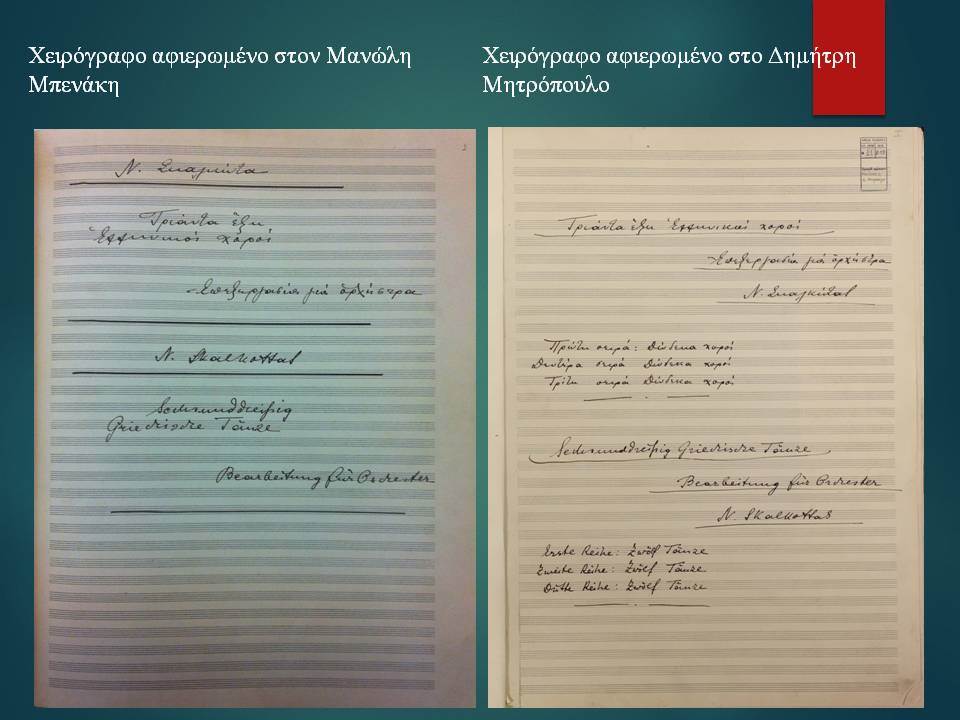 Χειρόγραφο αφιερωμένο στον Μανώλη
Μπενάκη
Χειρόγραφο αφιερωμένο στο Δημήτρη
Μητρόπουλο
Ν. Σκαλκώτα
Τριάντα ἕξη
Ἑλληνικοί χοροί
Επεξεργασία γιά ὀρχήστρα
N. Skalkottas
Sechsunddreißig
Griechische Tänze
Bearbeitung für Orchester
Τριάντα ἕξη Ἑλληνικοί χοροί
Επεξεργασία γιά ὀρχήστρα
Ν. Σκαλκώτας
Πρώτη σειρά: Δώδεκα χοροί
Δευτέρα σειρά Δώδεκα χοροί
Τρίτη σειρά Δώδεκα χοροί
Sechsunddreißig Griechische Tänze
Bearbeitung für Orchester
N. Skalkottas
Erste Reihe: Zwölf Tänze
Zweite Reihe: Zwölf Tänze
Dritte Reihe: Zwölf Tänze